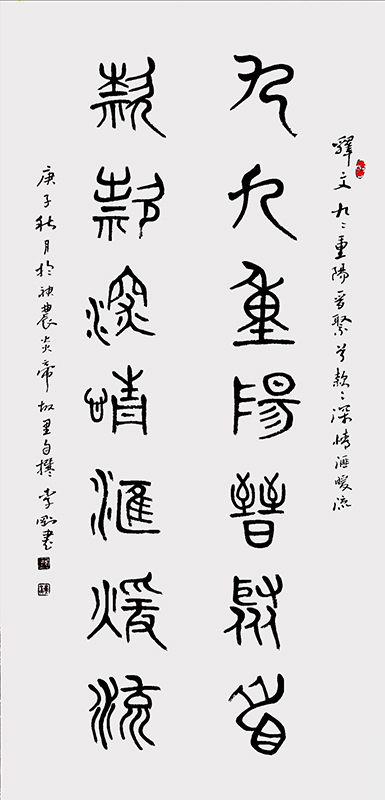 釋文九〻重陽晋聚首款〻深情滙暖流
九九重陽晉聚首
款款深情滙煖流
庚子秋月於神農炎帝故里自撰李剛書